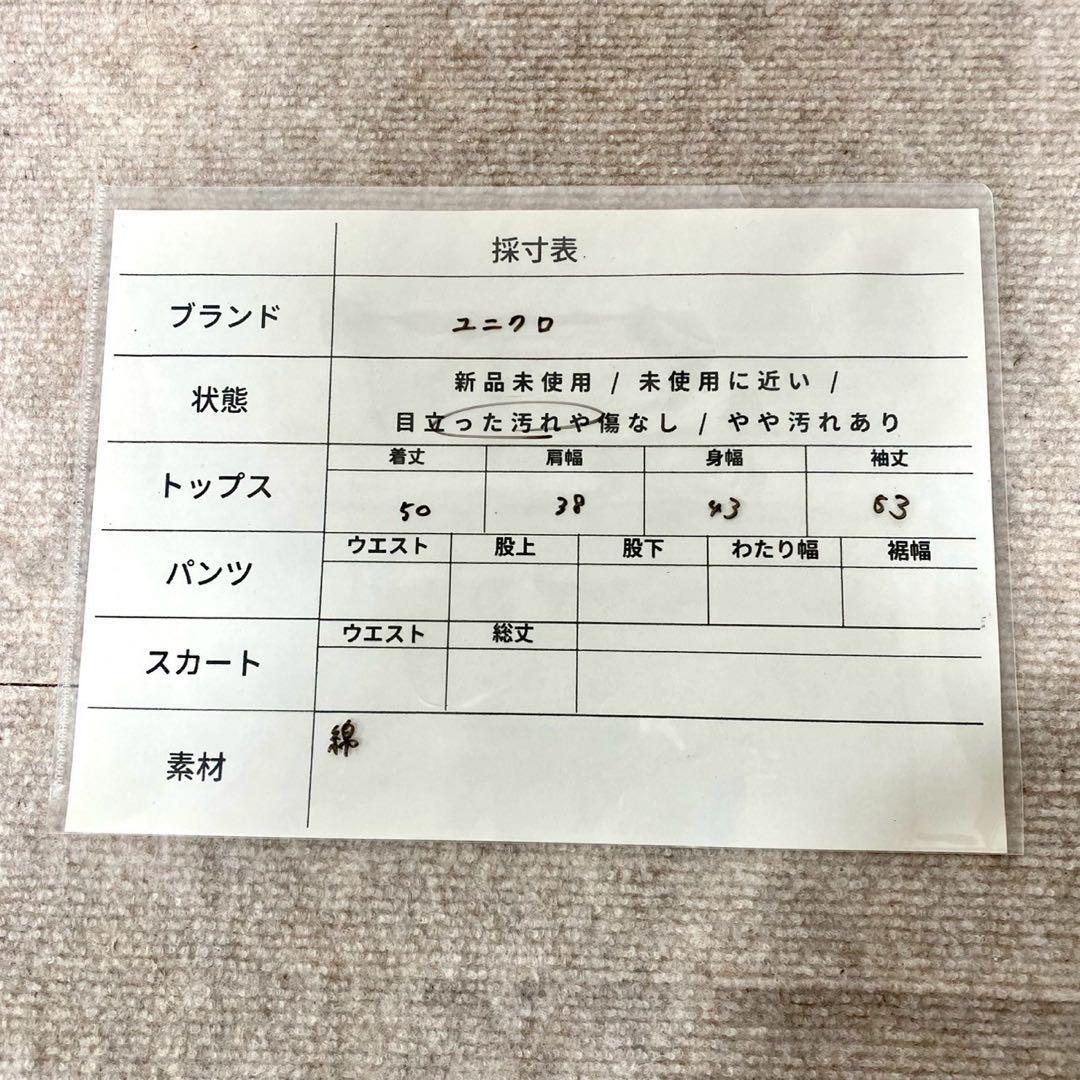 採寸表
ブランド ユニクロ
状態 新品未使用 / 未使用に近い /
目立った汚れや傷なし / やや汚れあり
着丈 肩幅 身幅 袖丈
トップス 50 38 43 63
ウエスト 股上 股下 わたり幅 裾幅
パンツ
ウエスト 総丈
スカート
素材 綿